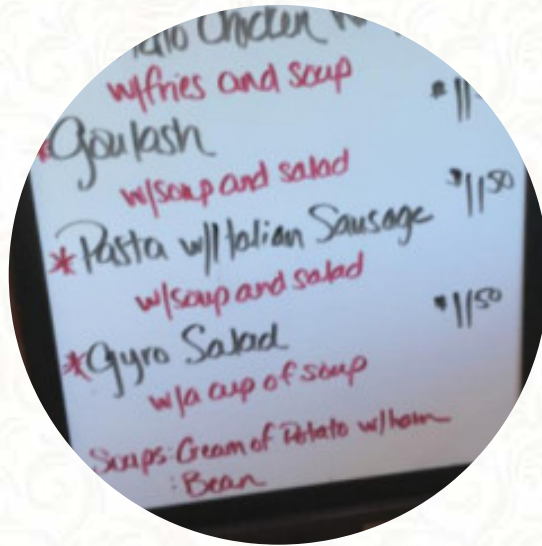 Chicken
w/fries and soup
*Goulash $11
w/soup and salad
*Pasta w/Italian Sausage $11 50
w/soup and salad
*Gyro Salad $11 50
w/a cup of soup
Soups: Cream of Potato w/ham
: Bean